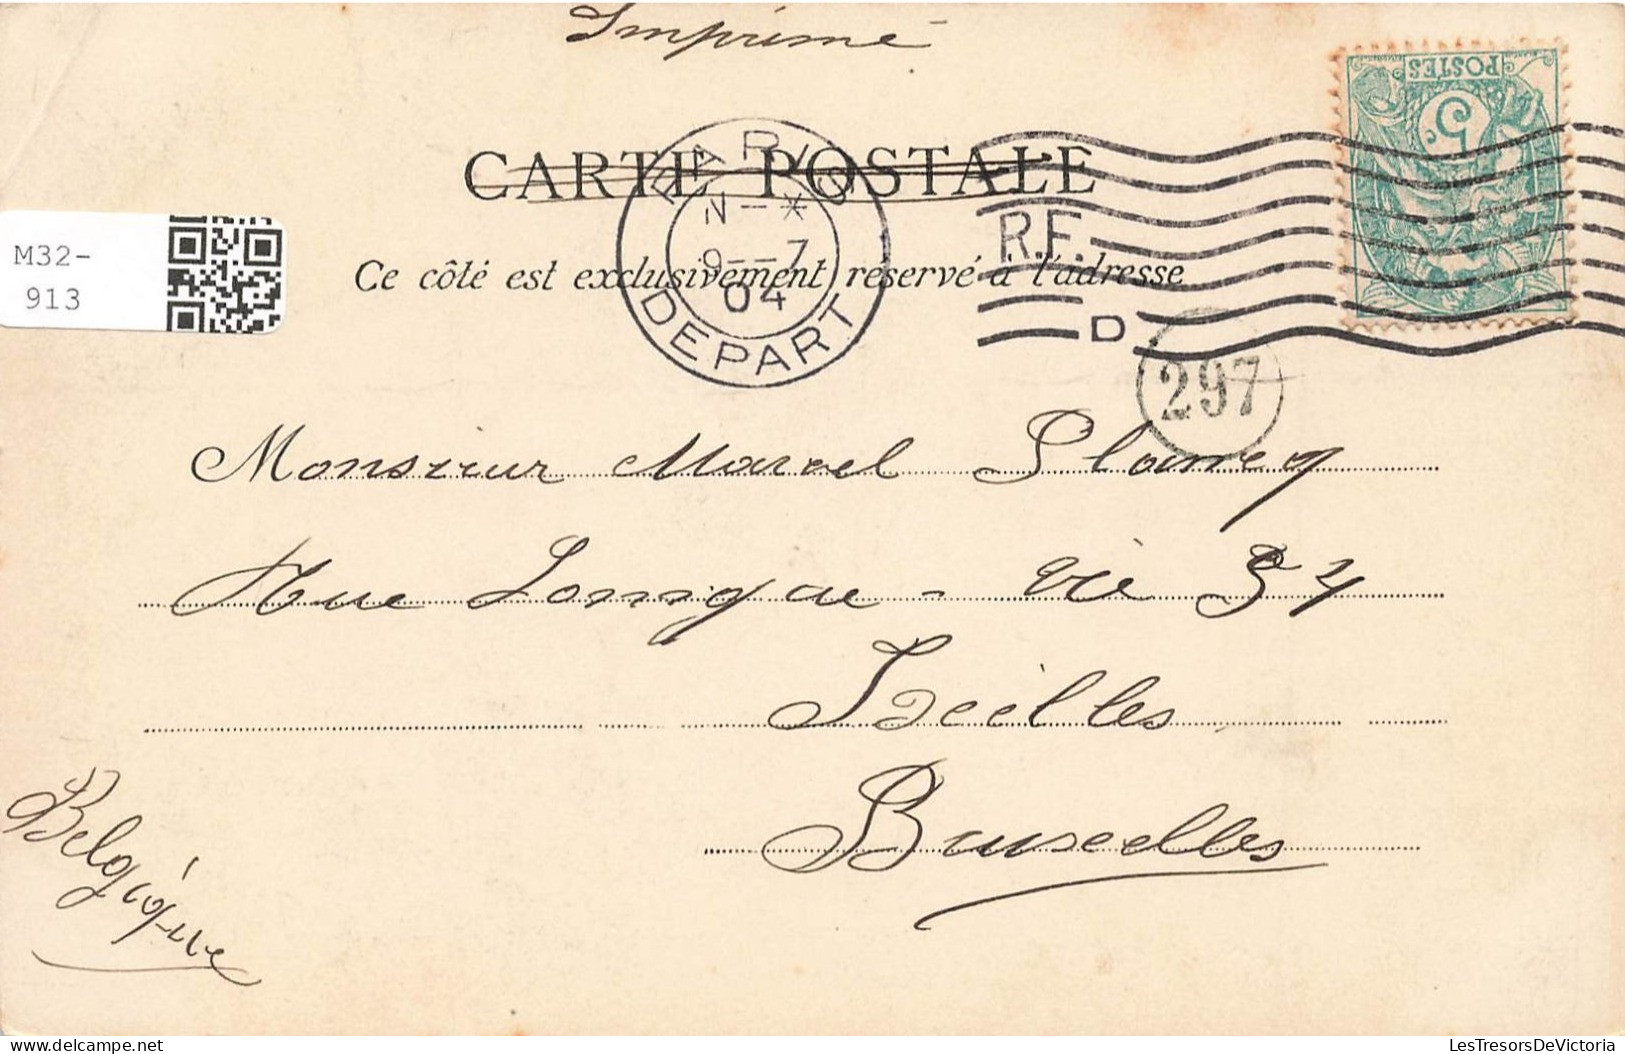 Imprimé
CARTE POSTALE
Ce côté est exclusivement réservé à l'adresse
PARIS
N - X
9 - 7
04
DEPART
R.F.
D
POSTES
5
297
M32-
913
Monsieur Marcel Planeq
Rue
34
Ixelles
Bruxelles
Belgique
delcampe.net
LesTresorsDeVictoria